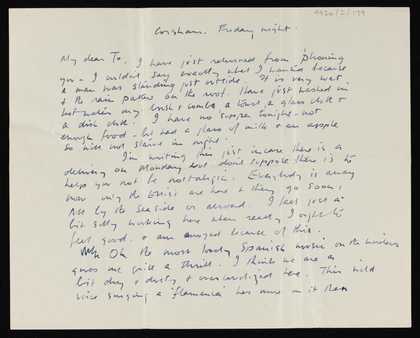 9420/2/199
Corsham. Friday night.
My dear To. I have just returned from 'phoning
you – I couldn't say exactly what I wanted because
a man was standing just outside. It is very wet,
& the rain patters on the roof. Have just washed in
hot water my brush & combs a towel, a glass cloth &
a dish cloth. I have no supper tonight – not
enough food – but had a glass of milk & an apple
so will not starve in night.
I'm writing this just in case there is a
delivery on Monday but don't suppose there is to
help you not be nostalgic. Everybody is away
now only the are here & they go soon,
All by the sea side or abroad. I feel just a
bit silly working here when really I ought to
feel good. & am annoyed because of this.
Oh the most lovely Spanish music on the wireless
gives me quite a thrill. I think we are a
bit dry & dusty & overcivilized here. This wild
voice singing a 'flamenca' has more in it than